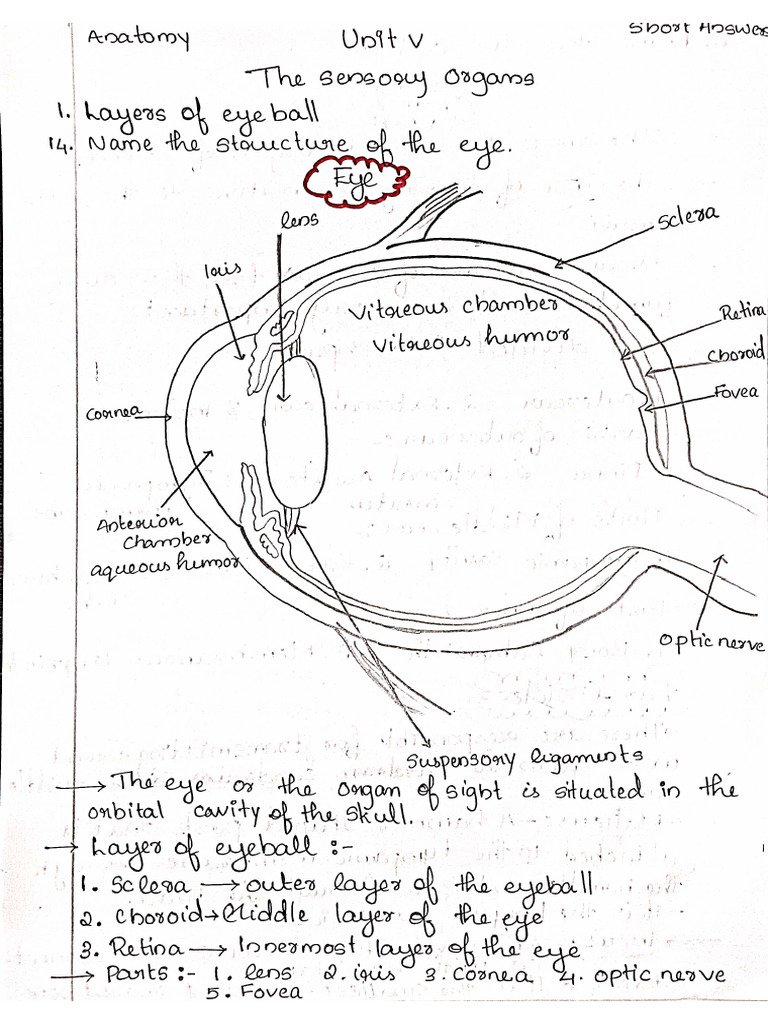 Anatomy Unit V Short Answers
The Sensory Organs
1. Layers of eyeball
14. Name the structure of the eye.
Eye
lens
Sclera
iris
Vitreous chamber
Vitreous humor
Retina
Choroid
Fovea
Cornea
Anterior
chamber
aqueous humor
Optic nerve
Suspensory ligaments
→ The eye or the organ of sight is situated in the
orbital cavity of the skull.
→ Layer of eyeball :-
1. Sclera → outer layer of the eyeball
2. Choroid → Middle layer of the eye
3. Retina → Innermost layer of the eye
→ Parts :- 1. lens 2. iris 3. Cornea 4. optic nerve
5. Fovea